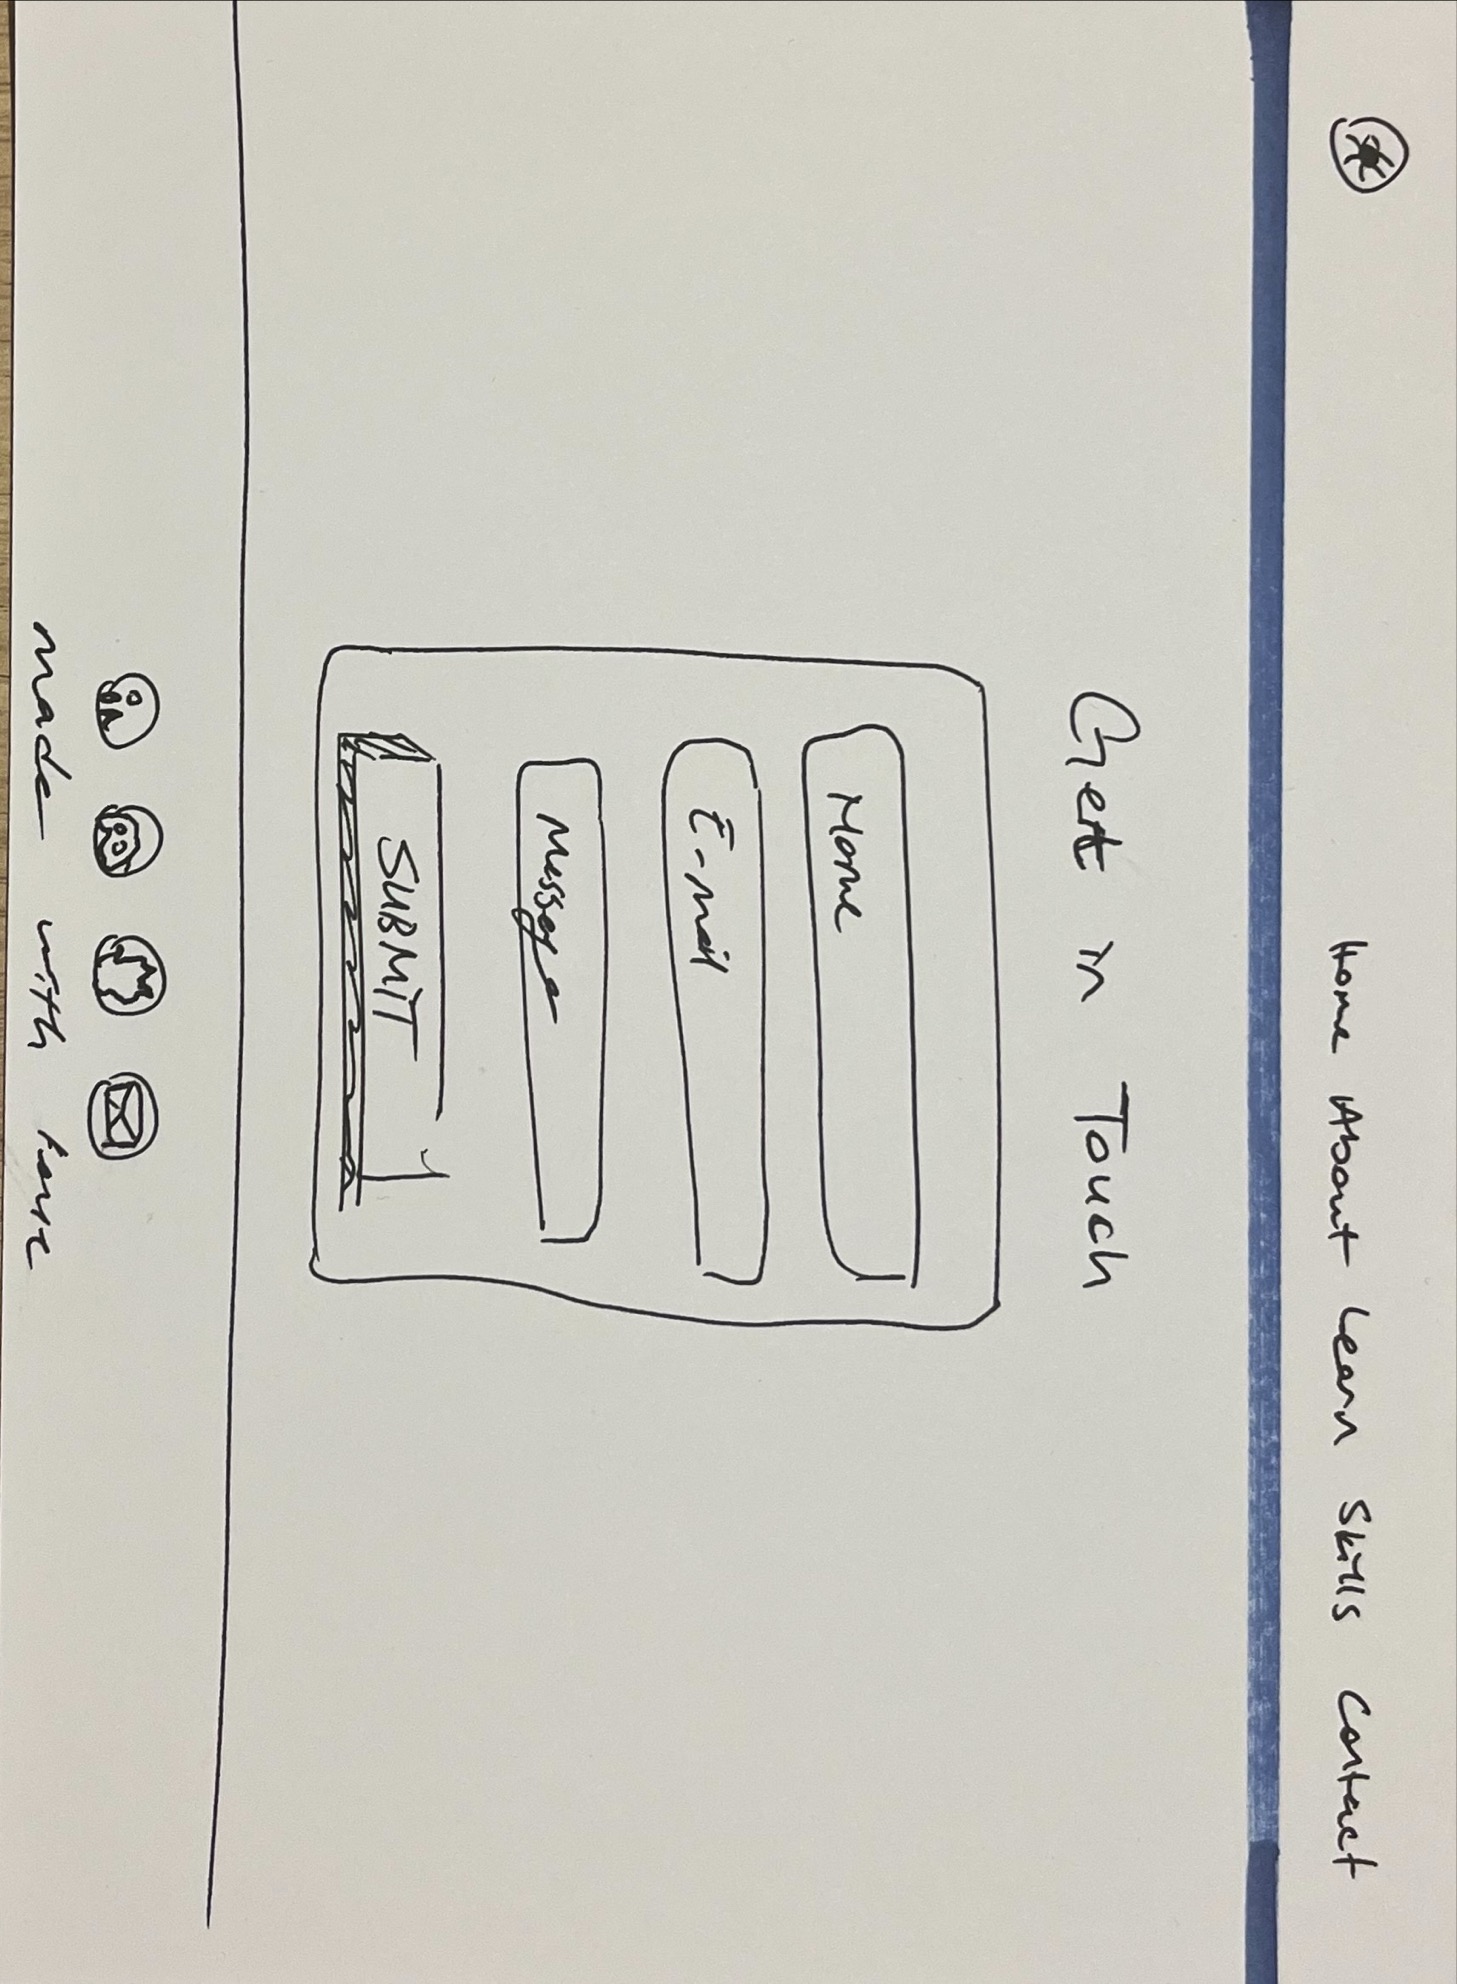 Home About Learn Skills Contact
Get in Touch
Name
E-mail
Message
SUBMIT
in
made with love